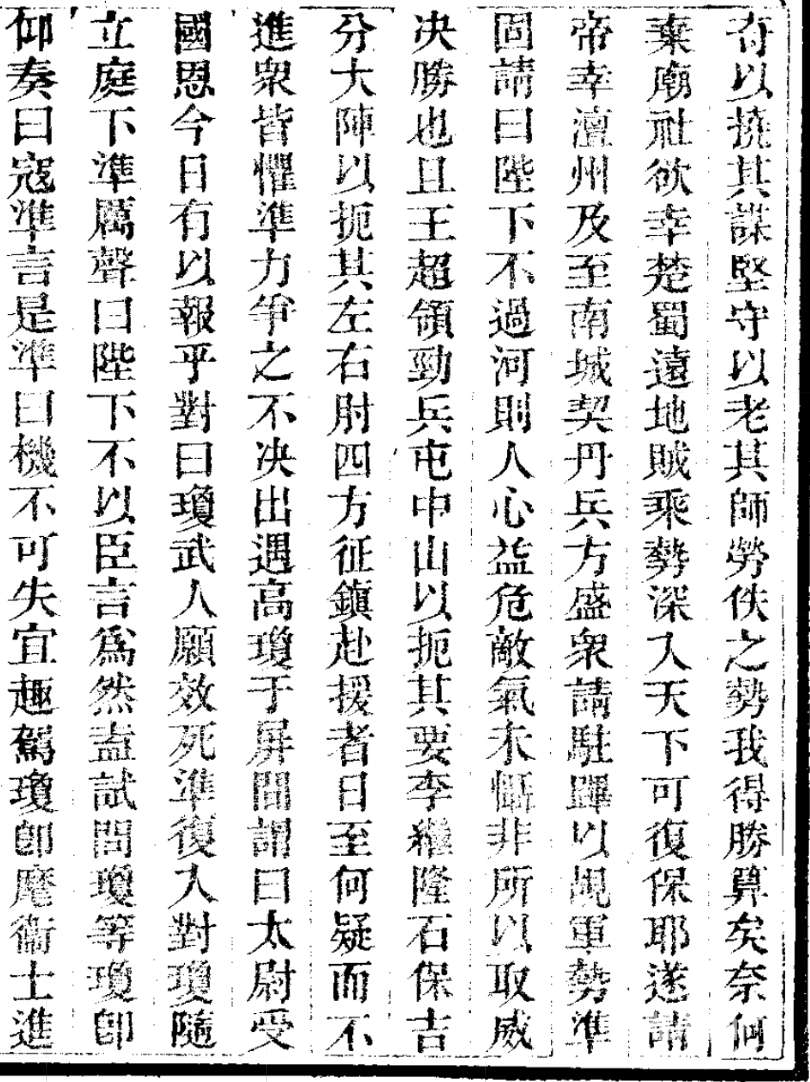 奇以撓其謀堅守以老其師勞佚之勢我得勝算矣奈何
棄廟社欲幸楚蜀遠地賊乘勢深入天下可復保耶遂請
帝幸澶州及至南城契丹兵方盛衆請駐蹕以覘軍勢準
固請曰陛下不過河則人心益危敵氣未懾非所以取威
决勝也且王超領勁兵屯中山以扼其要李繼隆石保吉
分大陣以扼其左右肘四方征鎮赴援者日至何疑而不
進衆皆懼準力爭之不决出遇高瓊于屏間謂曰太尉受
國恩今日有以報乎對曰瓊武人願效死準復入對瓊隨
立庭下準厲聲曰陛下不以臣言爲然盍試問瓊等瓊卽
仰奏曰寇準言是準曰機不可失宜趣駕瓊卽麾衞士進